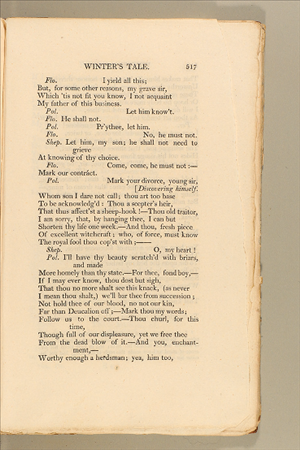 WINTER'S TALE. 517
Flo. I yield all this;
But, for some other reasons, my grave sir,
Which 'tis not fit you know, I not acquaint
My father of this business.
Pol. Let him know't.
Flo. He shall not.
Pol. Pr'ythee, let him.
Flo. No, he must not.
Shep. Let him, my son; he shall not need to
grieve
At knowing of thy choice.
Flo. Come, come, he must not:—
Mark our contráct.
Pol. Mark your divorce, young sir,
[Discovering himself.
Whom son I dare not call; thou art too base
To be acknowledg'd: Thou a scepter's heir,
That thus affect'st a sheep-hook!—Thou old traitor,
I am sorry, that, by hanging thee, I can but
Shorten thy life one week.—And thou, fresh piece
Of excellent witchcraft; who, of force, must know
The royal fool thou cop'st with;——
Shep. O, my heart!
Pol. I'll have thy beauty scratch'd with briars,
and made
More homely than thy state.—For thee, fond boy,—
If I may ever know, thou dost but sigh,
That thou no more shalt see this knack, (as never
I mean thou shalt,) we'll bar thee from succession;
Not hold thee of our blood, no not our kin,
Far than Deucalion off;—Mark thou my words;
Follow us to the court.—Thou churl, for this
time,
Though full of our displeasure, yet we free thee
From the dead blow of it.—And you, enchant-
ment,—
Worthy enough a herdsman; yea, him too,